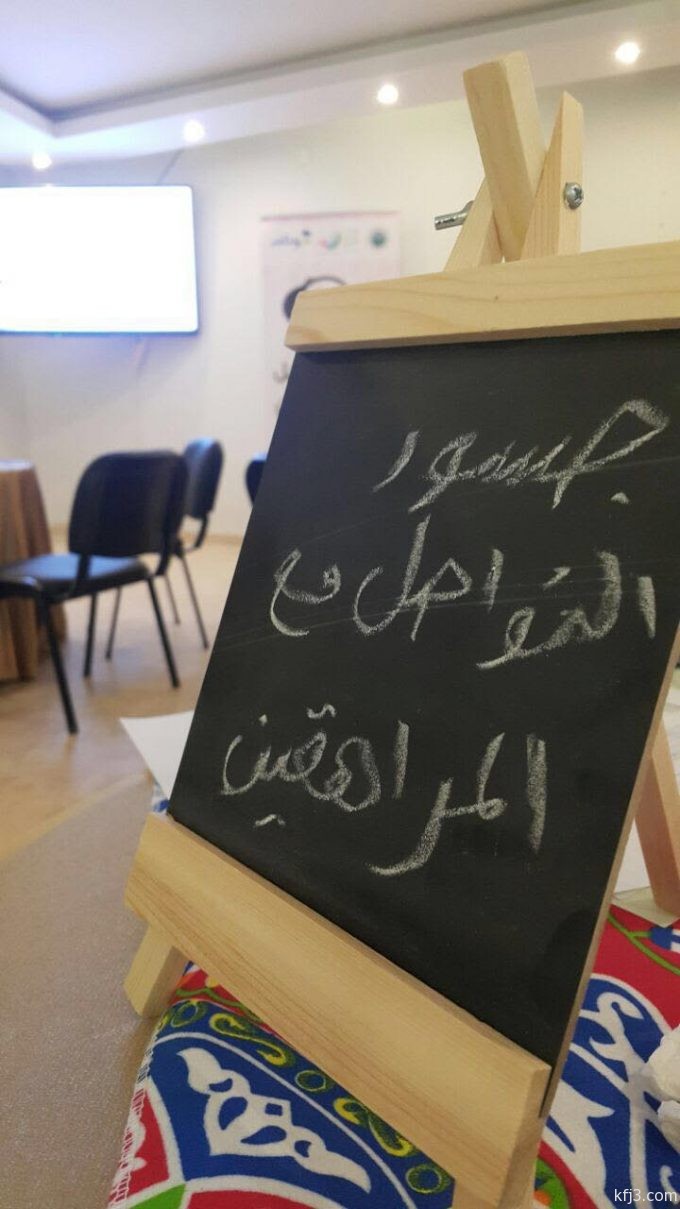 جسور
التواصل مع
المراهقين
kfj3.com